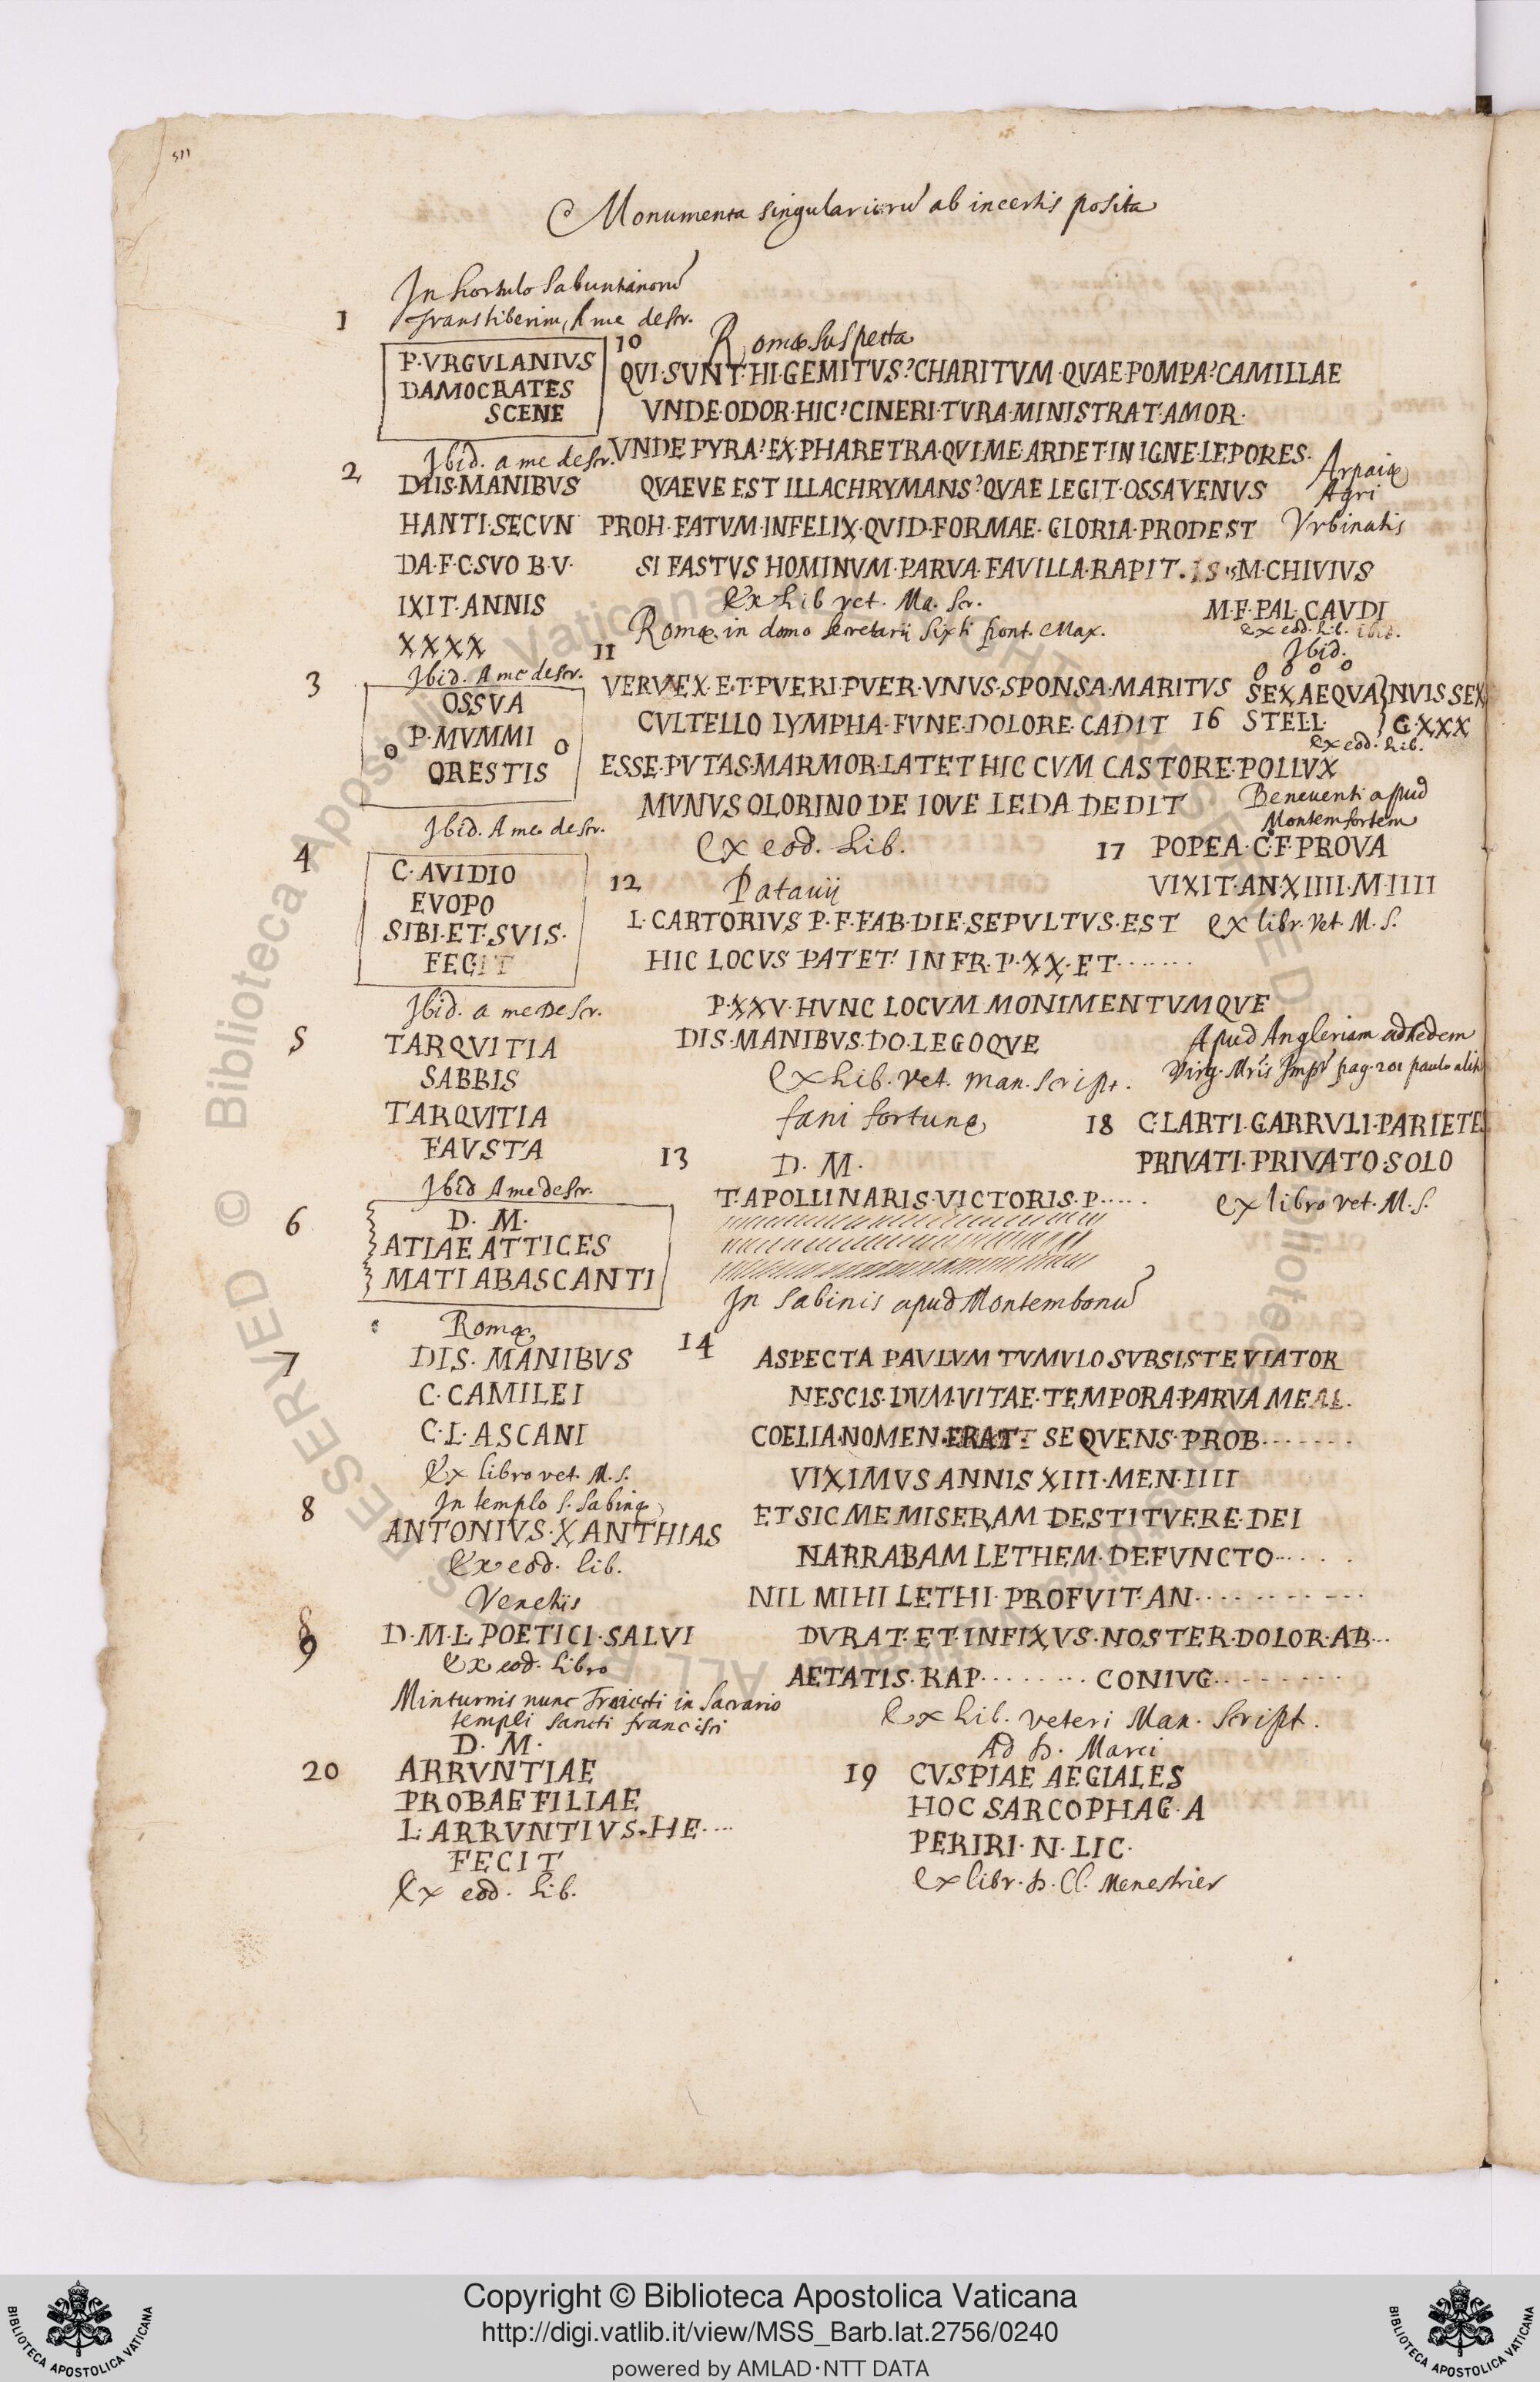 511
Monumenta singulariorū ab incertis posita
In hortulo Sabuntianorū
1 Transtiberim, A me descr.
P·VRGVLANIVS
DAMOCRATES
SCENE
2 Ibid. a me descr.
DIIS·MANIBVS
HANTI·SECVN
DA·F·C·SVO B·V·
IXIT·ANNIS
XXXX
3 Ibid. A me descr.
OSSVA
P·MVMMI
ORESTIS
Ibid. A me descr.
4 C·AVIDIO
EVOPO
SIBI·ET·SVIS·
FECIT
Ibid. a me Descr.
5 TARQVITIA
SABBIS
TARQVITIA
FAVSTA
Ibid A me descr.
6 D. M.
ATIAE ATTICES
MATI ABASCANTI
Romę
7 DIS. MANIBVS
C·CAMILEI
C·L·ASCANI
Ex libro vet. M.S.
8 In templo S. Sabinę
ANTONIVS·XANTHIAS
Ex eod. lib.
Venetiis
9 D·M·L·POETICI·SALVI
Ex eod. Libro
Minturnis nunc Traiecti in Sacrario
templi Sancti francisci
D. M.
20 ARRVNTIAE
PROBAE FILIAE
L·ARRVNTIVS·HE····
FECIT
Ex eod. Lib.
10 Romæ Suspecta
QVI·SVNT·HI·GEMITVS?CHARITVM·QVAE·POMPA?CAMILLAE
VNDE·ODOR·HIC?CINERI·TVRA·MINISTRAT·AMOR·
VNDE PYRA?EX·PHARETRA·QVI·ME·ARDET·IN IGNE·LEPORES·
QVAEVE EST ILLACHRYMANS?QVAE LEGIT·OSSA VENVS
PROH·FATVM·INFELIX·QVID·FORMAE·GLORIA·PRODEST
SI FASTVS HOMINVM·PARVA·FAVILLA·RAPIT.
Ex Lib vet. Ma. Scr.
Romę in domo Secretarii Sixti pont. Max.
11
VERVEX·E·T·PVERI·PVER·VNVS·SPONSA·MARITVS
CVLTELLO LYMPHA·FVNE·DOLORE·CADIT
ESSE·PVTAS·MARMOR·LATET HIC CVM CASTORE·POLLVX
MVNVS OLORINO DE IOVE LEDA DEDIT
Ex eod. Lib.
12 Patauij
L·CARTORIVS P·F·FAB·DIE·SEPVLTVS·EST
HIC LOCVS PATET·IN FR·P·XX·ET·······
P·XXV·HVNC LOCVM MONIMENTVMQVE
DIS·MANIBVS·DO·LEGOQVE
Ex Lib. Vet. Man. Script.
fani fortunę
13 D. M.
T·APOLLINARIS·VICTORIS·P·····
In Sabinis apud Montembonū
14 ASPECTA PAVLVM TVMVLO SVBSISTE VIATOR
NESCIS·DVM·VITAE·TEMPORA·PARVA MEAE·
COELIA·NOMEN·ERAT· SEQVENS·PROB·······
VIXIMVS ANNIS XIII·MEN·IIII
ET SIC ME MISERAM DESTITVERE·DEI
NARRABAM LETHEM·DEFVNCTO·····
NIL MIHI LETHI·PROFVIT·AN···········
DVRAT·ET·INFIXVS·NOSTER·DOLOR·AB···
AETATIS·RAP········CONIVG·········
Ex Lib. Veteri Man. Script.
Ad S. Marci
19 CVSPIAE AEGIALES
HOC SARCOPHAG·A
PERIRI·N·LIC·
Ex libr. D. Cl. Menestrier
Arpaię
Agri
Vrbinatis
15 M·CHIVIVS
M·F·PAL·CAVDI
ex eod. Lib. ibid.
Ibid.
SEXAEQVA}NVIS SEX
16 STELL· }G·XXX
ex eod. Lib.
Beneuenti apud
Montem fortem
17 POPEA·C·F·PROVA
VIXIT·AN·XIIII·M·IIII
Ex libr. Vet. M.S.
Apud Angleriam ad Aedem
Virg. Mr̄is pag. 201 paulo alit
18 C·LARTI·GARRVLI·PARIETES
PRIVATI·PRIVATO·SOLO
Ex libro vet. M.S.
© Biblioteca Apostolica Vaticana ALL RIGHTS RESERVED
Copyright © Biblioteca Apostolica Vaticana
http://digi.vatlib.it/view/MSS_Barb.lat.2756/0240
powered by AMLAD·NTT DATA
BIBLIOTECA APOSTOLICA VATICANA
BIBLIOTECA APOSTOLICA VATICANA